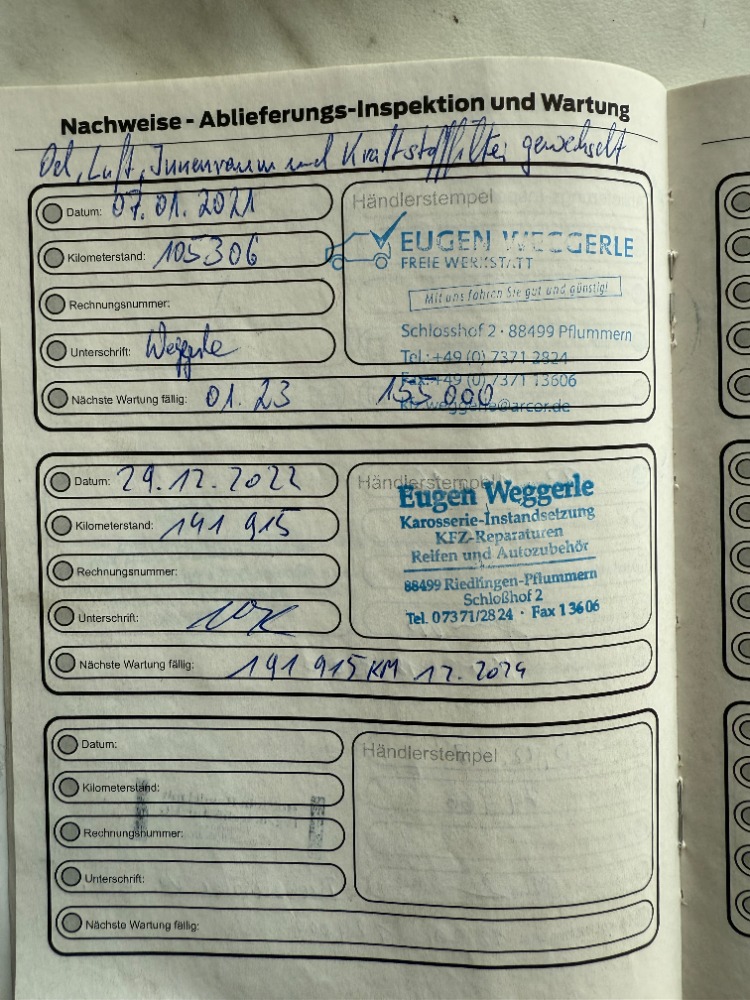 Nachweise - Ablieferungs-Inspektion und Wartung
Oel, Luft, Innenraum und Kraftstofffilter gewechselt
Datum: 07.01.2021
Kilometerstand: 105306
Rechnungsnummer:
Unterschrift: Weggerle
Nächste Wartung fällig: 01.23 155000
Händlerstempel
EUGEN WEGGERLE
FREIE WERKSTATT
Mit uns fahren Sie gut und günstig!
Schlosshof 2 · 88499 Pflummern
Tel.: +49 (0) 7371 2824
Fax: +49 (0) 7371 13606
weggerle@arcor.de
Datum: 29.12.2022
Kilometerstand: 141 915
Rechnungsnummer:
Unterschrift:
Nächste Wartung fällig: 191 915 KM 12.2024
Händlerstempel
Eugen Weggerle
Karosserie-Instandsetzung
KFZ-Reparaturen
Reifen und Autozubehör
88499 Riedlingen-Pflummern
Schloßhof 2
Tel. 07371/2824 · Fax 13606
Datum:
Kilometerstand:
Rechnungsnummer:
Unterschrift:
Nächste Wartung fällig:
Händlerstempel